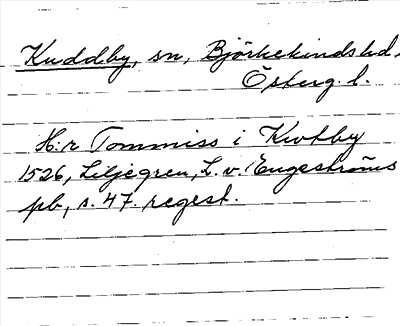 Kuddby, sn, Björkekinds hd.
Österg. l.
H:r Tommiss i Kwtby
1526, Liljegren, L. v. Engeströms
pb, s. 47. regest.